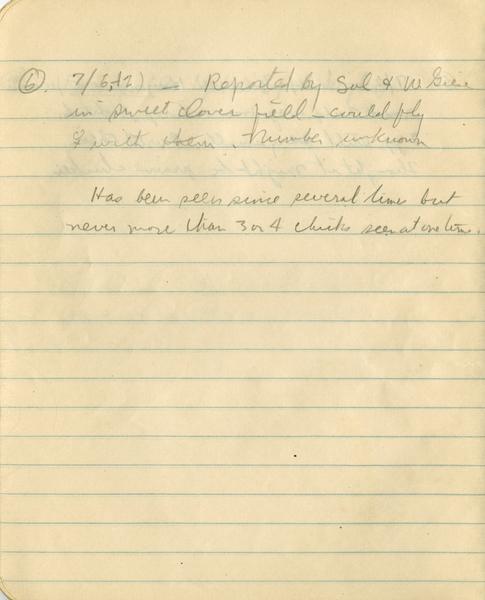 (6) 7/6,12) - Reported by Sol & McGiese
in sweet clover field - could fly
♀ with them. Number unknown
Has been seen since several times but
never more than 3 or 4 chicks seen at one time.